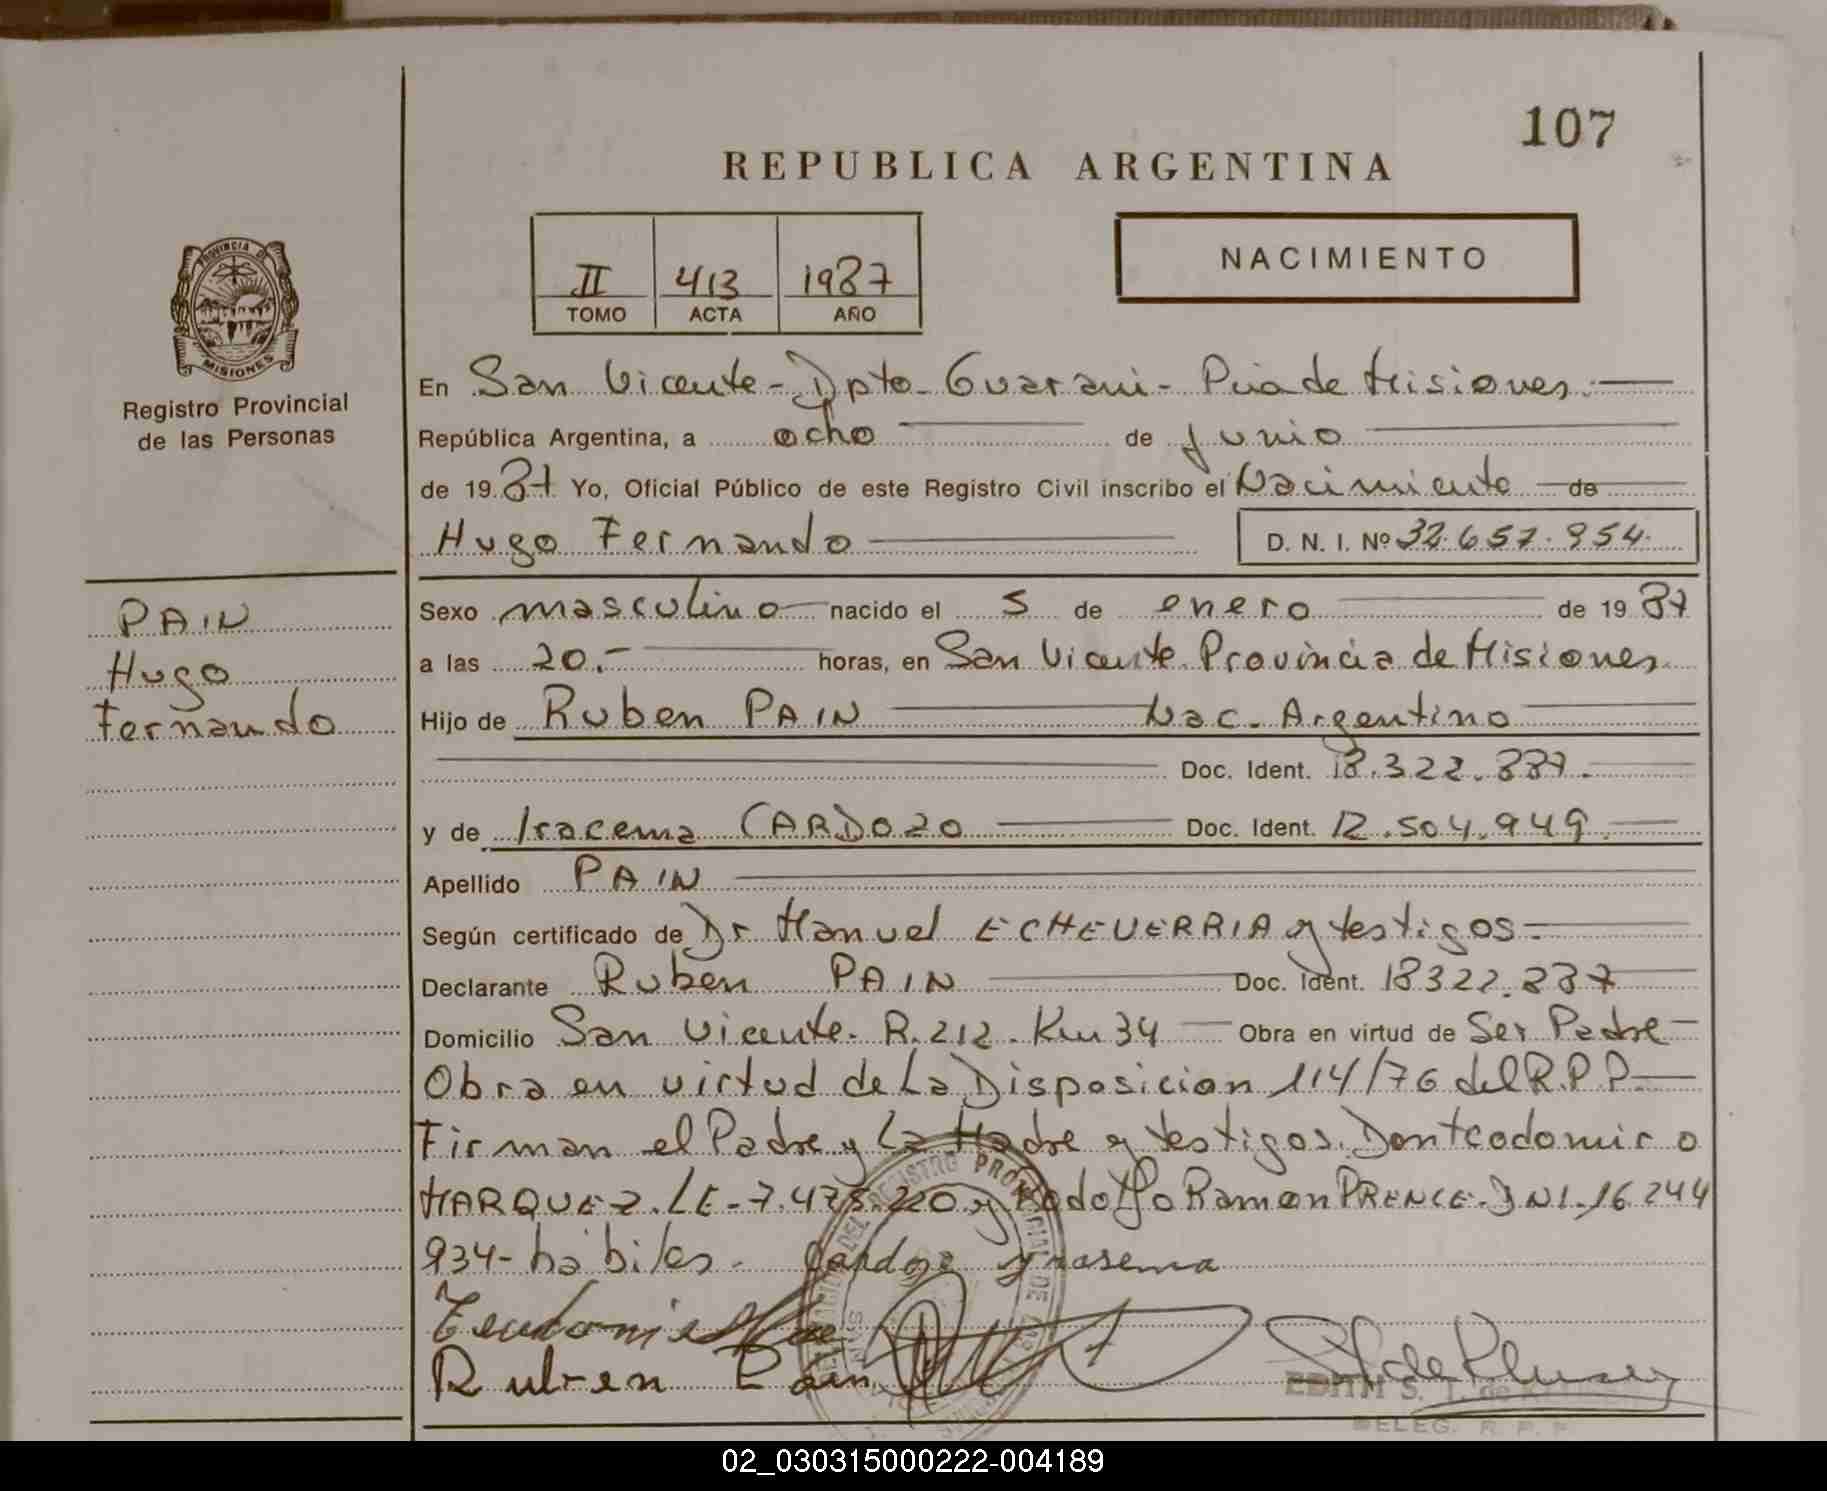 107
REPUBLICA ARGENTINA
II 413 1987
TOMO ACTA AÑO
NACIMIENTO
PROVINCIA DE
MISIONES
Registro Provincial
de las Personas
En San Vicente - Dpto - Guarani - Pcia de Misiones.
República Argentina, a ocho de junio
de 1987. Yo, Oficial Público de este Registro Civil inscribo el Nacimiento de
Hugo Fernando D. N. I. Nº 32.657.954.
PAIN
Hugo
Fernando
Sexo masculino nacido el 5 de enero de 1987
a las 20.- horas, en San Vicente Provincia de Misiones
Hijo de Ruben PAIN Nac. Argentino
Doc. Ident. 18.322.887.
y de Iracema CARDOZO Doc. Ident. 12.504.949.
Apellido PAIN
Según certificado de Dr Manuel ECHEVERRIA y testigos.
Declarante Ruben PAIN Doc. Ident. 18322.887
Domicilio San Vicente. R. 212. Km 34 Obra en virtud de Ser Padre
Obra en virtud de La Disposicion 114/76 del R.P.P.
Firman el Padre y La Madre y testigos. Don
MARQUEZ. LE - 7.478.220 y Rodolfo Ramon PRENCE. DNI. 16.244
934 - hábiles. Cardoza yrasema
Ruben Pain
EDITH S. T. de
DELEG. R. P. P.
02_030315000222-004189